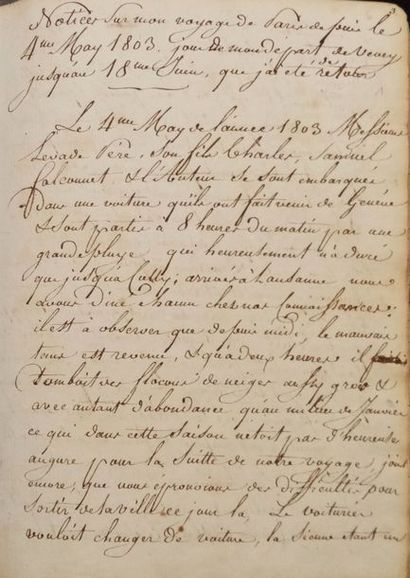 Notices Sur mon voyage de Paris depuis le
4me May 1803. jour de mon départ de Vevey
jusqu'au 18me Juin, que j'ai été de retour
Le 4me May de l'année 1803 Messieurs
Levade Père, Son fils Charles, Samuel
Falconnet, & l'Auteur se sont embarqués
dans une voiture qu'ils ont fait venir de Genève
& sont partis à 8 heures du matin par une
grande pluye qui heureusement n'a duré
que jusqu'à Cully; arrivés à Lausanne nous
avons diné chacun chez nos Connaissances;
il est à observer que depuis midi, le mauvais
tems est revenu, & qu'à deux heures il
tomboit des flocons de neiges aussy gros &
avec autant d'abondance qu'au milieu de Janvier
ce qui dans cette saison n'etoit pas d'heureuse
augure pour la Suitte de notre voyage, joint
encore, que nous eprouvions des difficultés pour
Sortir de la ville ce jour là. Le voiturier
vouloit changer de voiture, la Sienne étant un